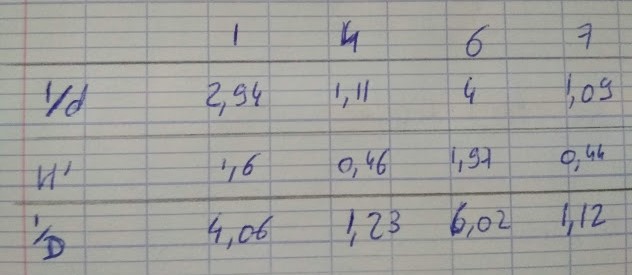 1 4 6 7
1/d 2,94 1,11 4 1,09
H' 1,6 0,46 1,97 0,44
1/D 4,06 1,23 6,02 1,12